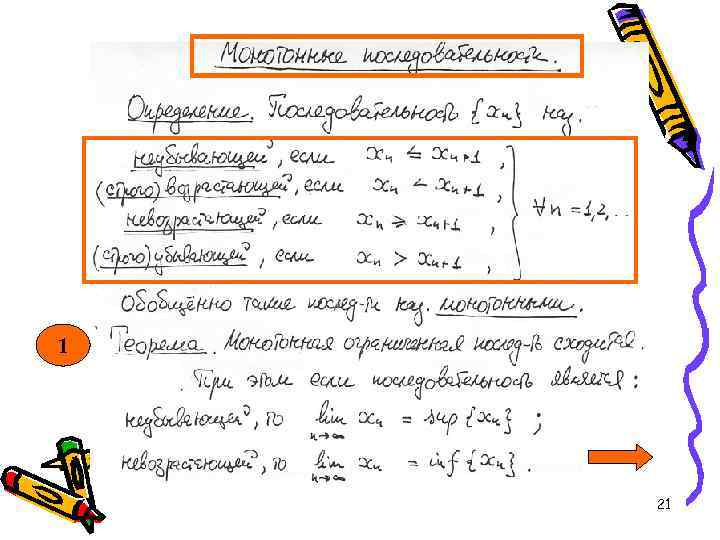 Монотонные последовательности.
Определение. Последовательность {xn} наз.
неубывающей, если xn ≤ xn+1,
(строго) возрастающей, если xn < xn+1,
невозрастающей, если xn ≥ xn+1,
(строго) убывающей, если xn > xn+1,
∀n = 1,2,...
Обобщённо такие послед-ти наз. монотонными.
1
Теорема. Монотонная ограниченная послед-ть сходится.
При этом если последовательность является:
неубывающей, то lim n→∞ xn = sup {xn};
невозрастающей, то lim n→∞ xn = inf {xn}.
21